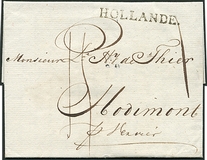 HOLLANDE.
Monsieur Hy. de Thier
Hodimont
p. Verviers